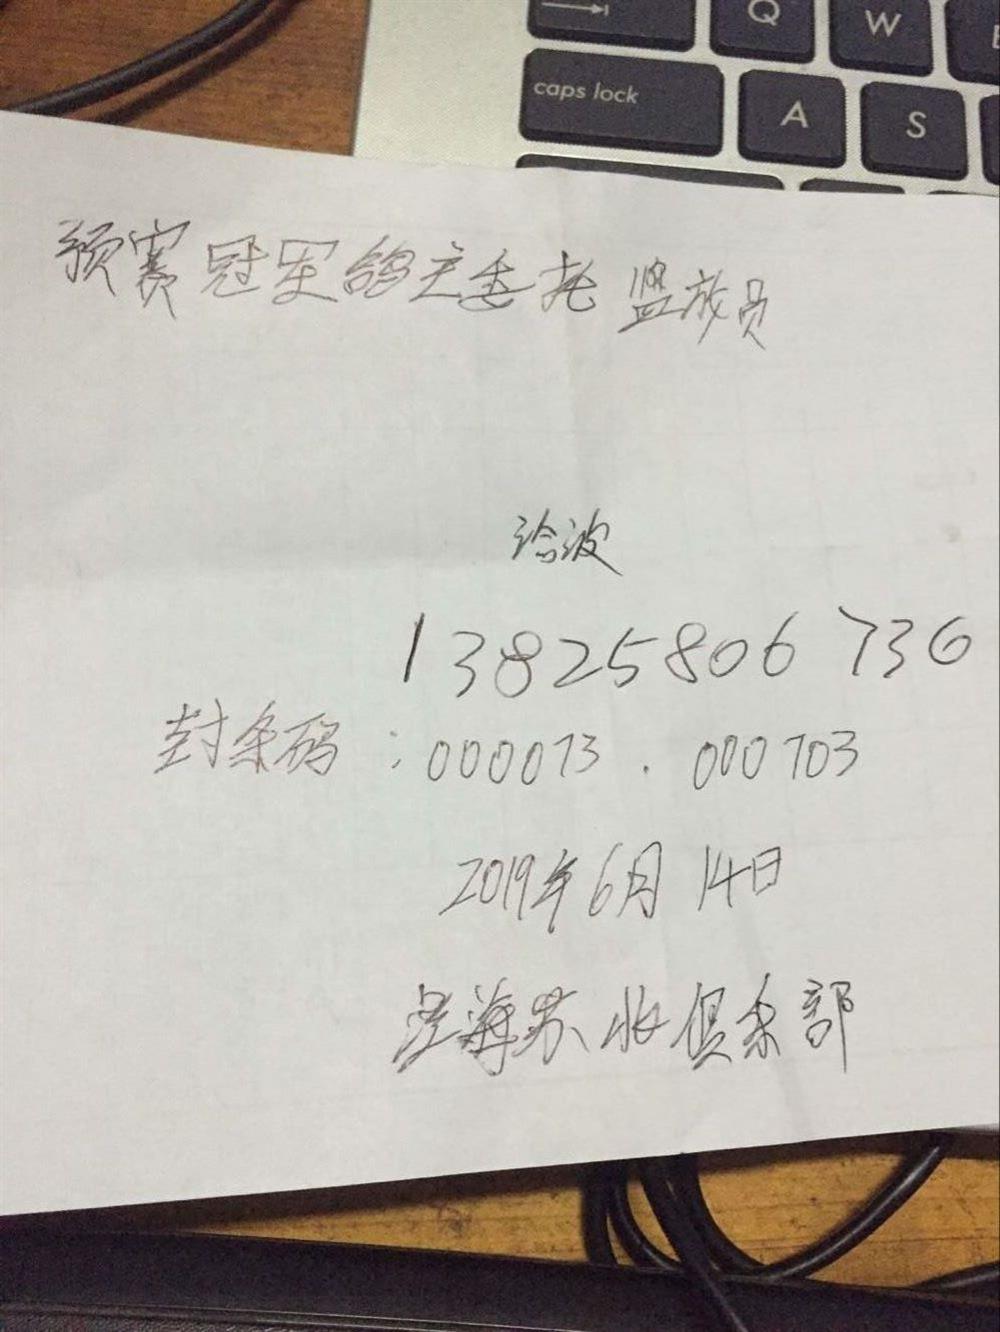 Q W
caps lock A S
预赛冠军鸽主委托监放员
波
13825806736
封条码：000073．000703
2019年6月14日
海苏 俱乐部